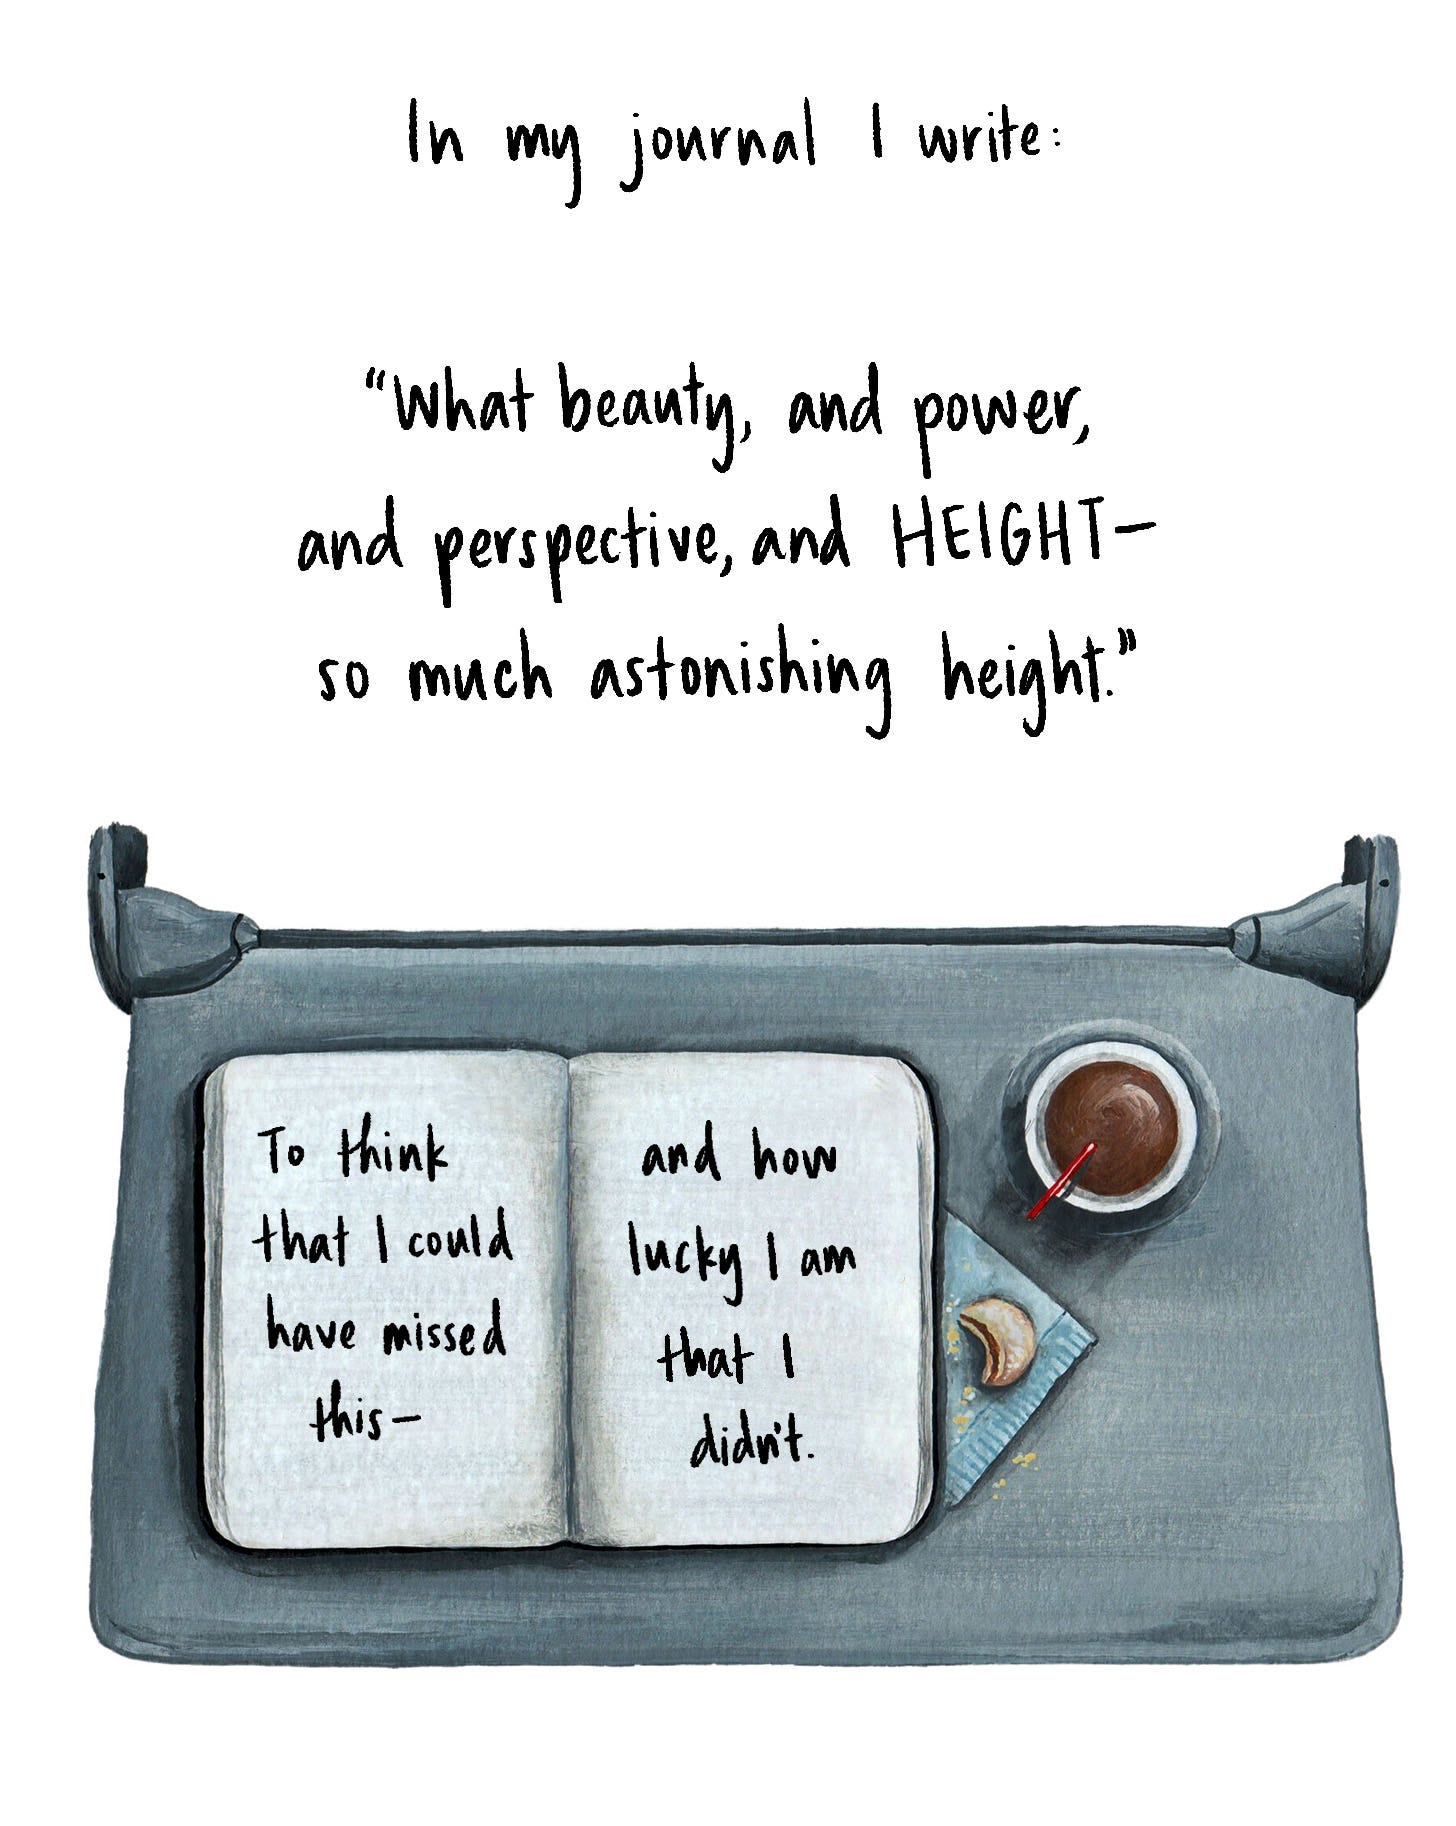 In my journal I write:
“What beauty, and power,
and perspective, and HEIGHT—
so much astonishing height.”
To think
that I could
have missed
this—
and how
lucky I am
that I
didn't.